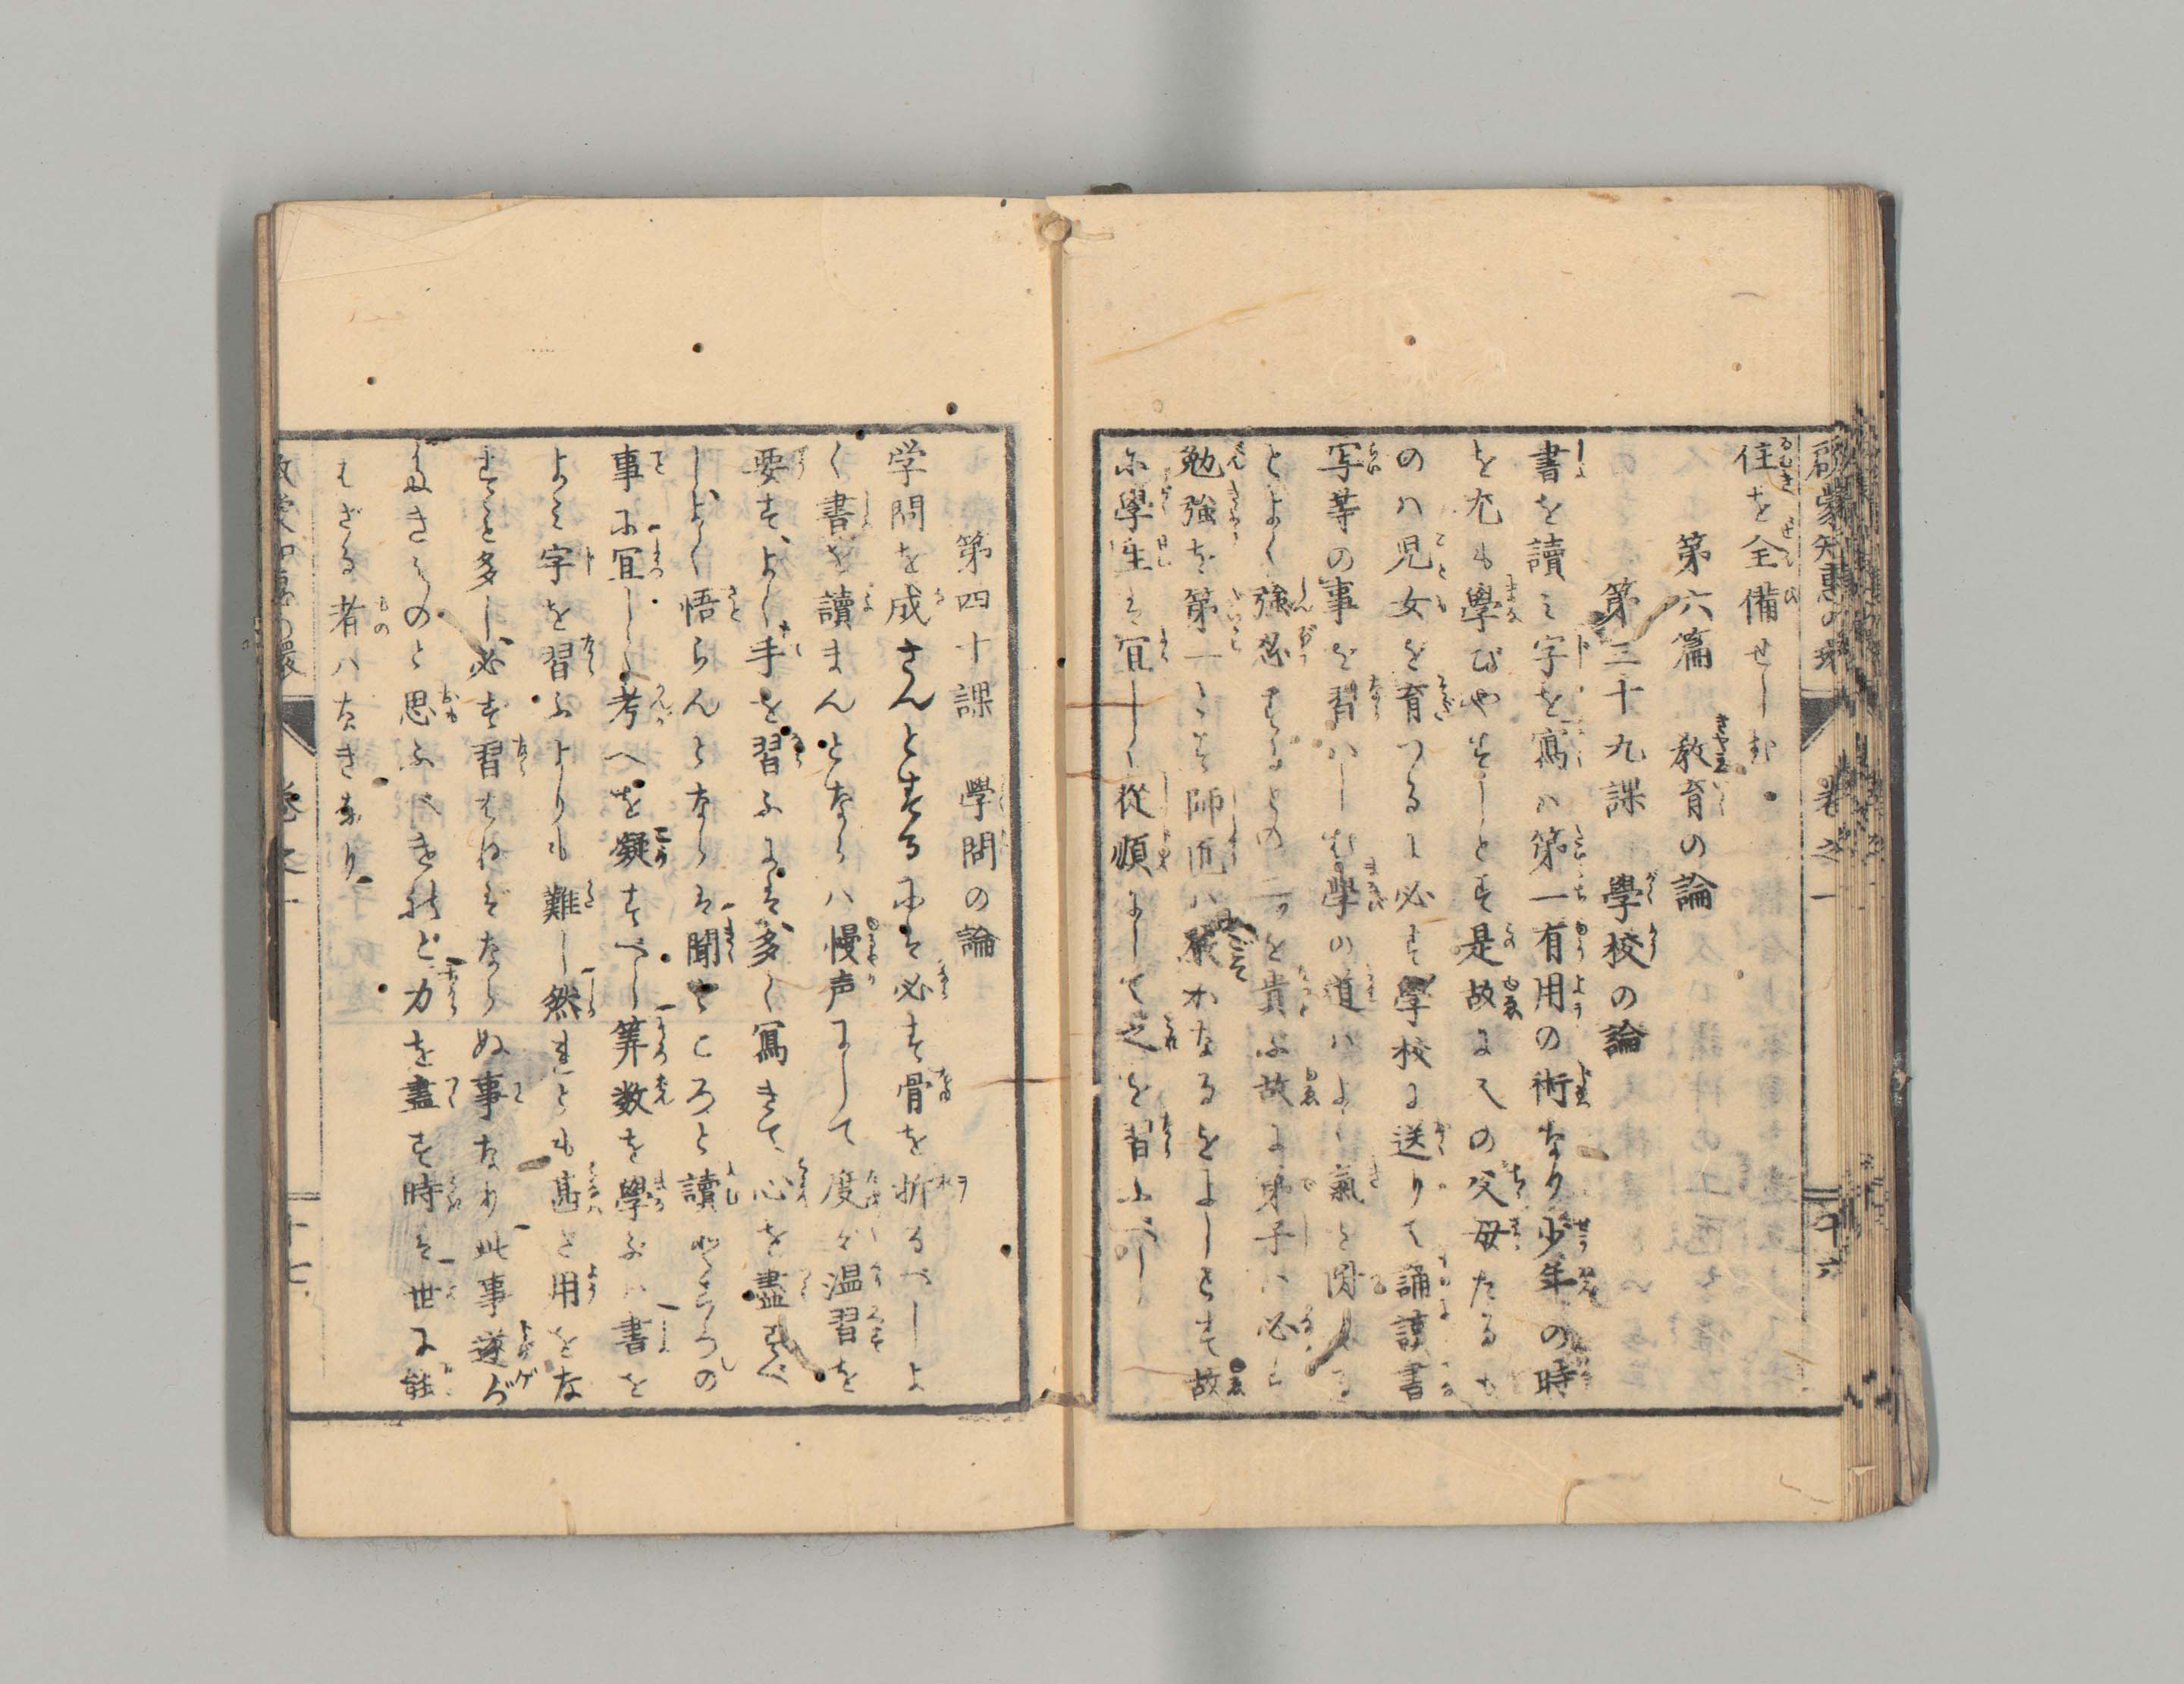 啓蒙知惠の環 卷之一 十六
住を全備せしむ
第六篇 教育の論
第三十九課 學校の論
書を讀ミ字を寫ハ第一有用の術なり少年の時
を尤も學びやすしとす是故に人の父母たるも
のハ児女を育つるに必す學校に送りて誦讀書
写等の事を習ハしむ學の道ハよく氣を
とよく強忍するとの二つを貴ふ故に弟子ハ必ら
勉強を第一とす師匠ハ嚴かなるをよしとす故
に學生は宜しく從順にして之を習ふべし
第四十課 學問の論
学問を成さんとするには必す骨を折るべしよ
く書を讀まんとならハ慢声にして度々温習を
要す、よく手を習ふには、多く寫きて心を盡すべ
しよく悟らんとならは聞ところと讀ところの
事に宜しく考へを凝すべし筭数を學ぶハ書を
よミ字を習ふよりも難し然れとも甚た用をな
すこと多し必す習はねばならぬ事なり此事遂げ
難きものと思ふべきれど力を盡す時は世に能
はざる者ハなきなり
卷之一 十七